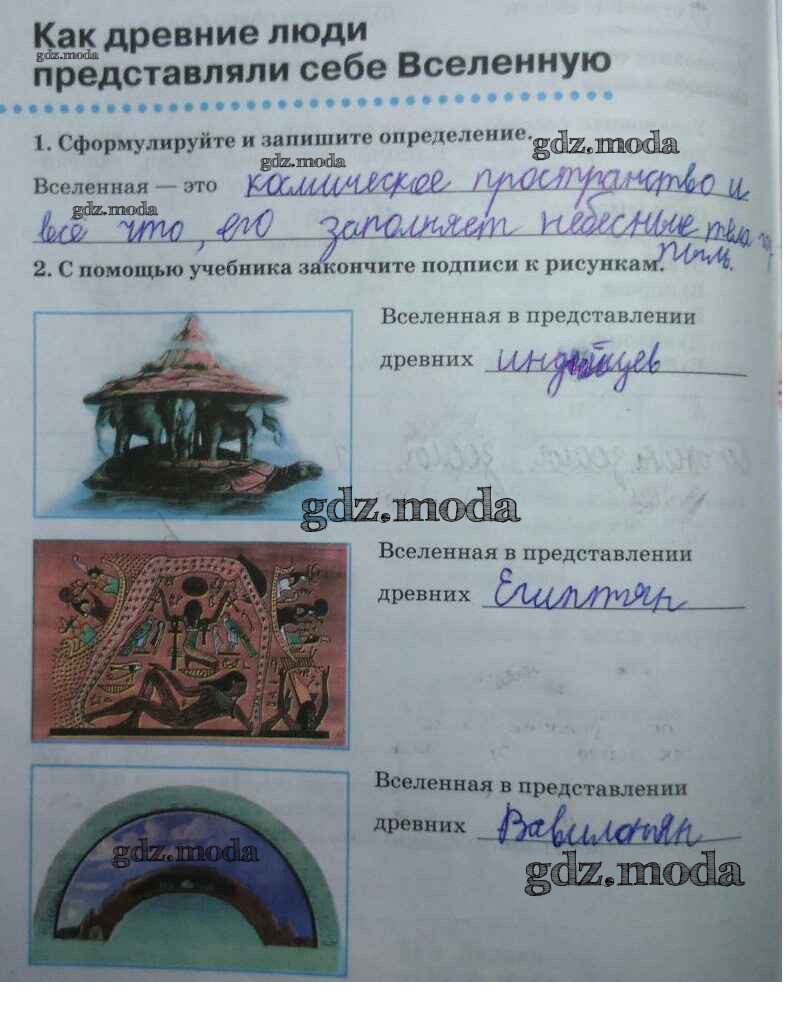 Как древние люди
gdz.moda
представляли себе Вселенную
1. Сформулируйте и запишите определение.
gdz.moda
gdz.moda
Вселенная — это космическое пространство и
gdz.moda
всё что, его заполняет небесные тела
пыль.
2. С помощью учебника закончите подписи к рисункам.
Вселенная в представлении
древних индийцев
gdz.moda
Вселенная в представлении
древних Египтян
Вселенная в представлении
древних Вавилонян
gdz.moda
gdz.moda